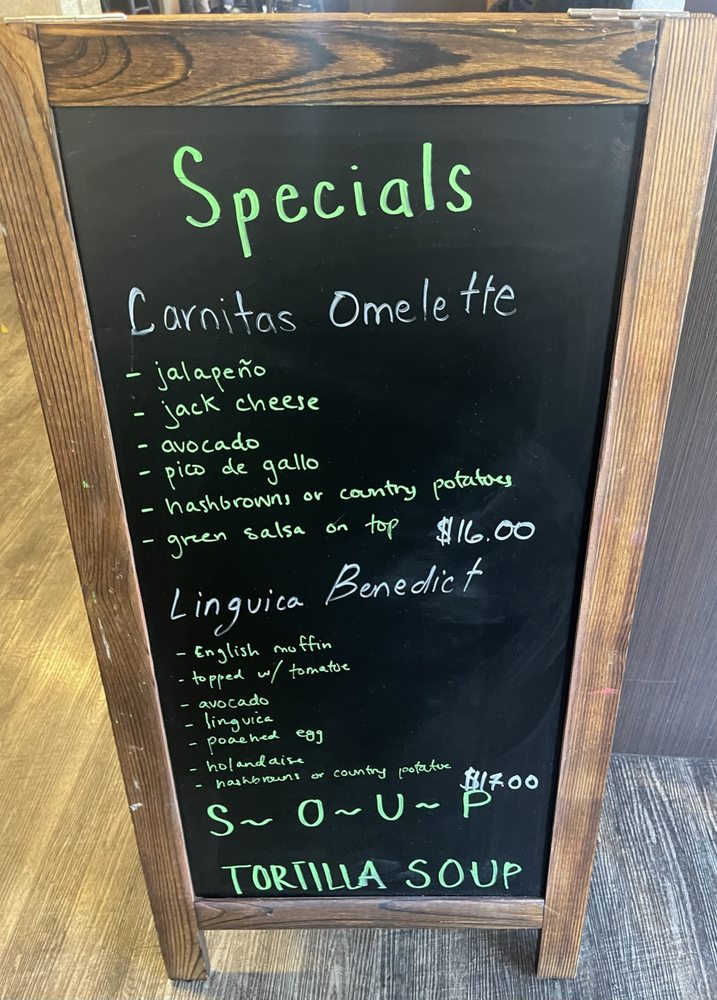 Specials
Carnitas Omelette
- jalapeño
- jack cheese
- avocado
- pico de gallo
- hashbrowns or country potatoes
- green salsa on top $16.00
Linguica Benedict
- English muffin
- topped w/ tomatoe
- avocado
- linguica
- poached egg
- holandaise
- hashbrowns or country potatoe $17.00
S~ O~ U~ P
TORTILLA SOUP